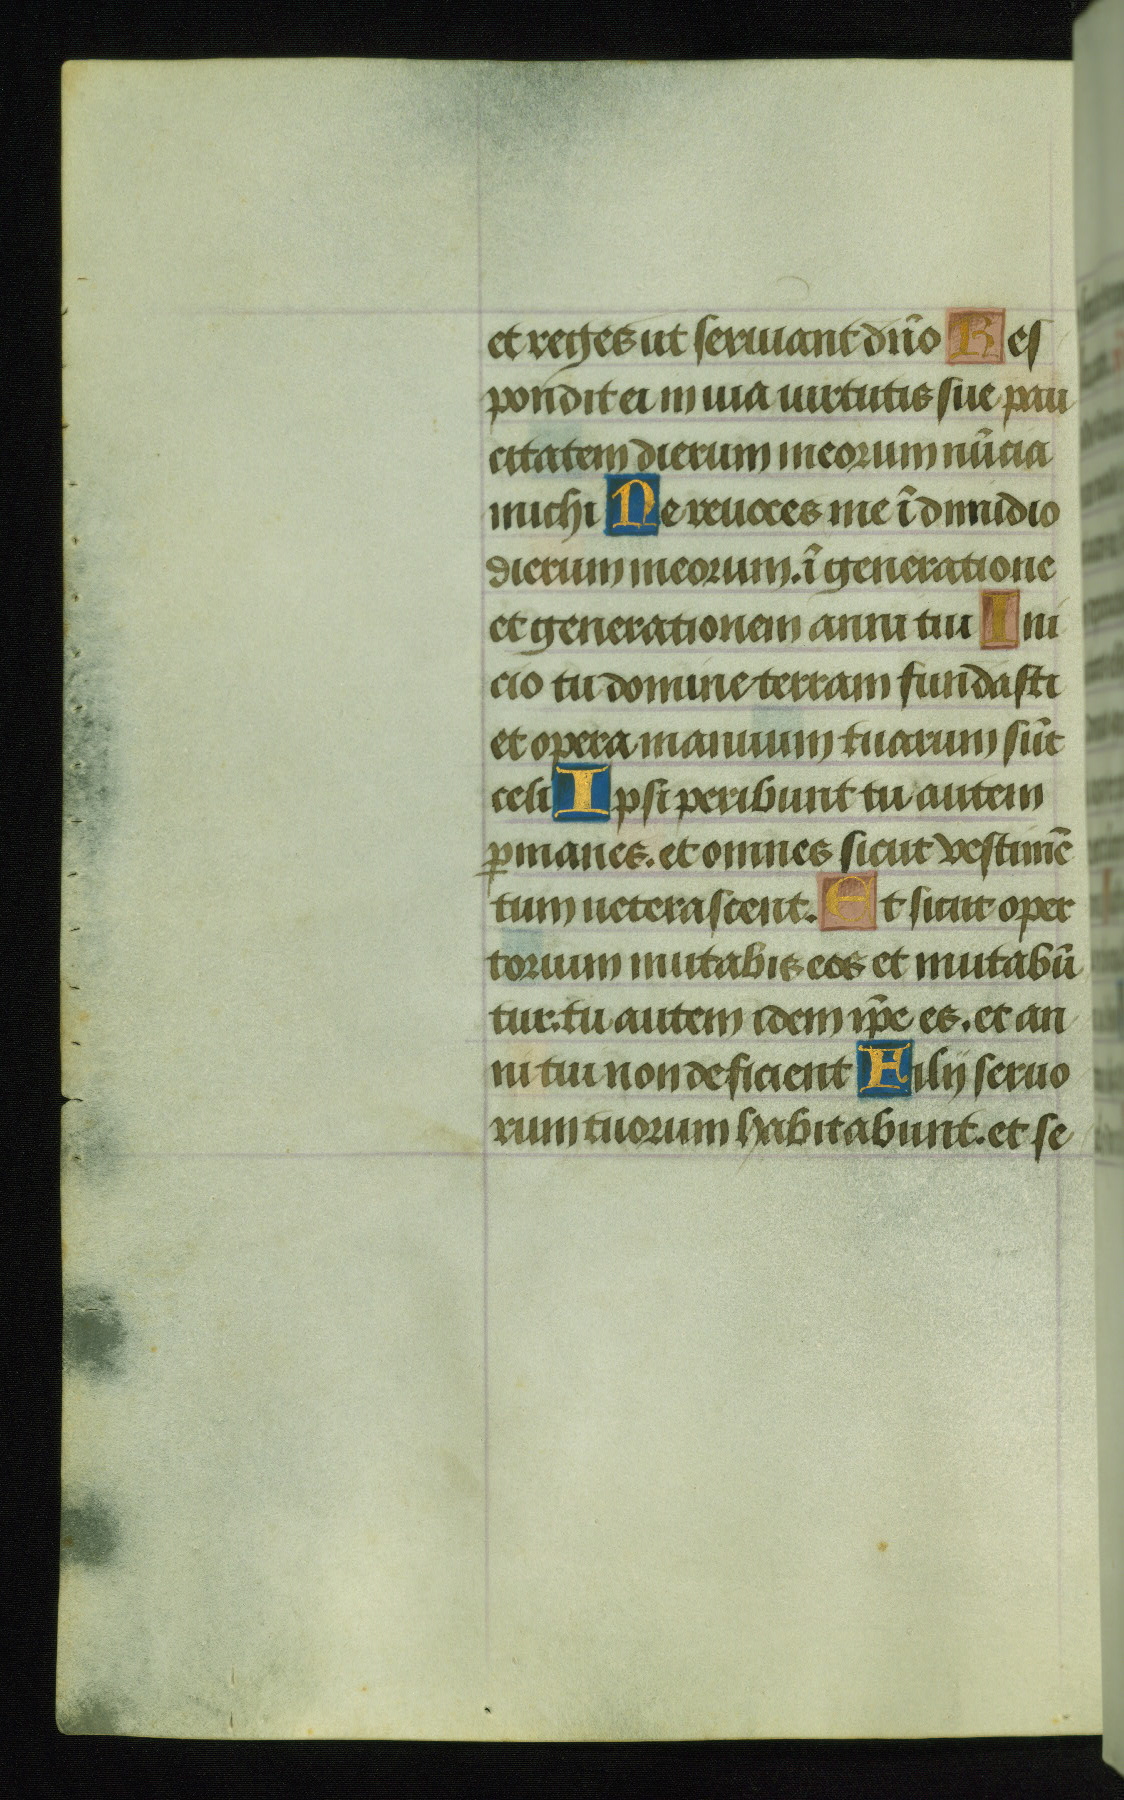 et reges ut seruiant dn̄o Res
pondit ei in uia uirtutis sue pau
citatem dierum meorum nūcia
michi Ne reuoces me ī dimidio
dierum meorum. ī generatione
et generationem anni tui Ini
cio tu domine terram fundasti
et opera manuum tuarum sūt
celi Ipsi peribunt tu autem
ꝑmanes. et omnes sicut vestimē
tum ueterascent. Et sicut oper
torium mutabis eos et mutabū
tur. tu autem idem ip̄e es. et an
ni tui non deficient Filij seruo
rum tuorum habitabunt. et se